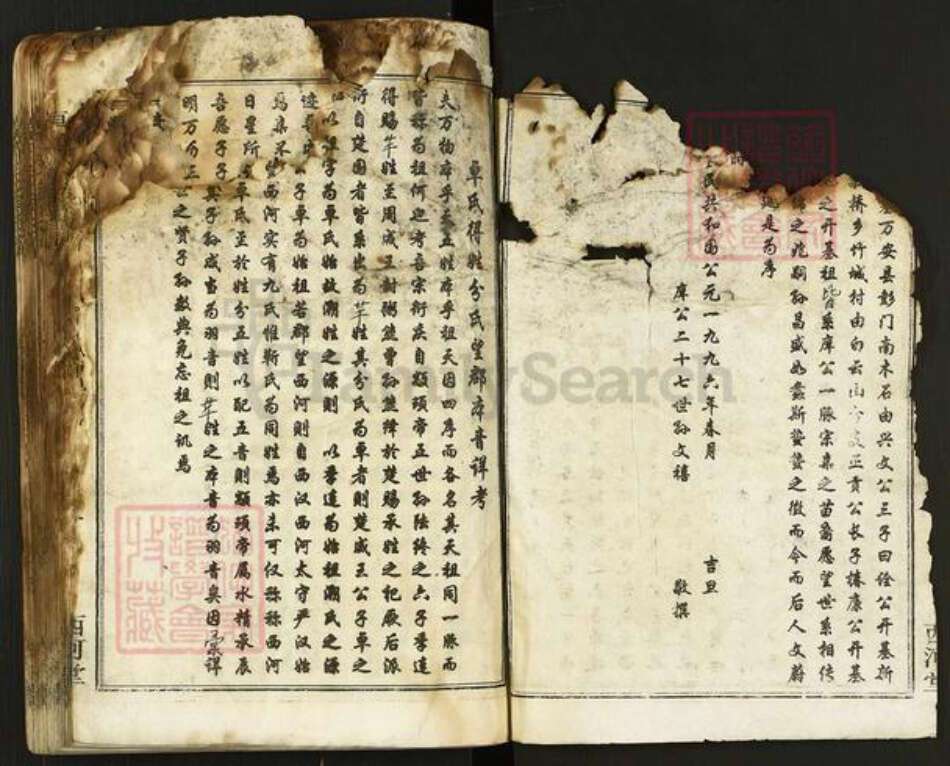 万安县彭门南木石由兴文公三子曰俭公开基新
桥乡竹城村由白云山 正贡公长子椿康公开基
之开基祖皆系庠公一脉宗亲之苗裔愿望世系相传
之兆嗣孙昌盛如螽斯蛰蛰之徵而今而后人文蔚
是为序
民共和国公元一九九六年春月 吉旦
庠公二十七世孙文禧 敬撰
卓氏得姓分氏望郡本音详考
夫万物本乎天五姓本乎祖天因四序而各名其天祖同一脉而
皆称为祖何也考吾宗衍庆自颛顼帝五世孙陆终之六子季连
得赐芈姓至周成王封粥熊曾孙熊绎於楚赐承姓之祀厥后派
衍自楚国者皆系出为芈姓其分氏为卓者则楚威王公子卓之
以卓字为卓氏始故溯姓之源则 以季连为始祖溯氏之源
公子卓为始祖若郡望西河则自西汉西河太守严汉始
焉集 望西河实有九氏惟靳氏为同姓焉亦未可仅称称西河
日星所 卓氏至於姓分五姓以配五音则颛顼帝属水精承辰
吾愿子子 孙咸当为羽音则芈姓之本音为羽音矣因 详
明万 正 之贤子孙数典免忘祖之讥焉
西河堂
西河堂
FamilySearch